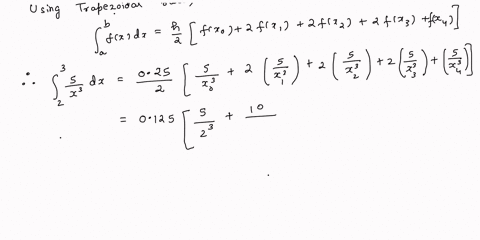 Using Trapezoidal
∫_a^b f(x) dx = h/2 [ f(x₀) + 2 f(x₁) + 2 f(x₂) + 2 f(x₃) + f(x₄) ]
∴ ∫_2^3 5/x³ dx = 0.25/2 [ 5/x₀³ + 2 (5/x₁³) + 2 (5/x₂³) + 2 (5/x₃³) + (5/x₄³) ]
= 0.125 [ 5/2³ + 10/